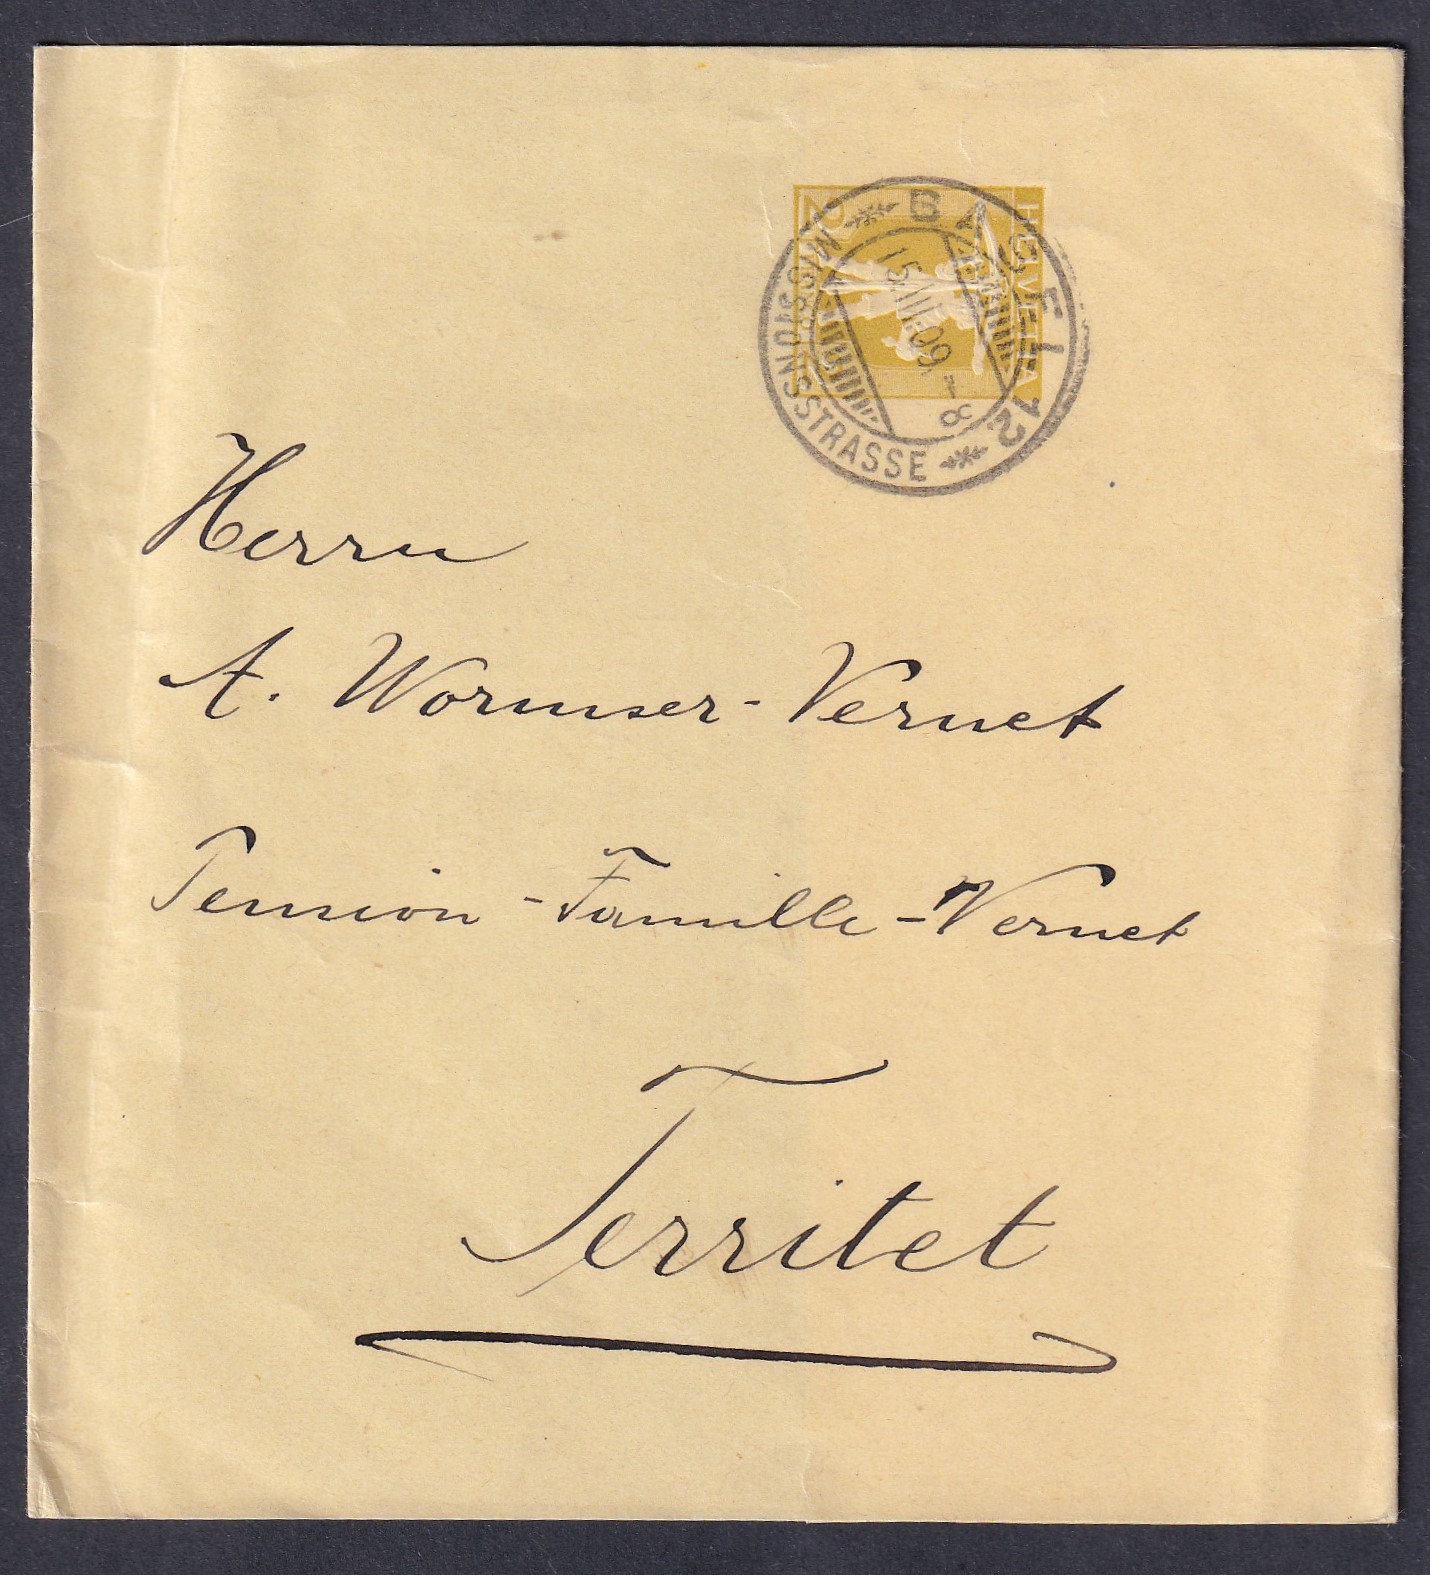 HELVETIA
2
BASEL 12
15.III.09. - 8
MISSIONSSTRASSE
Herrn
A. Wormser-Vernet
Pension-Famille-Vernet
Territet